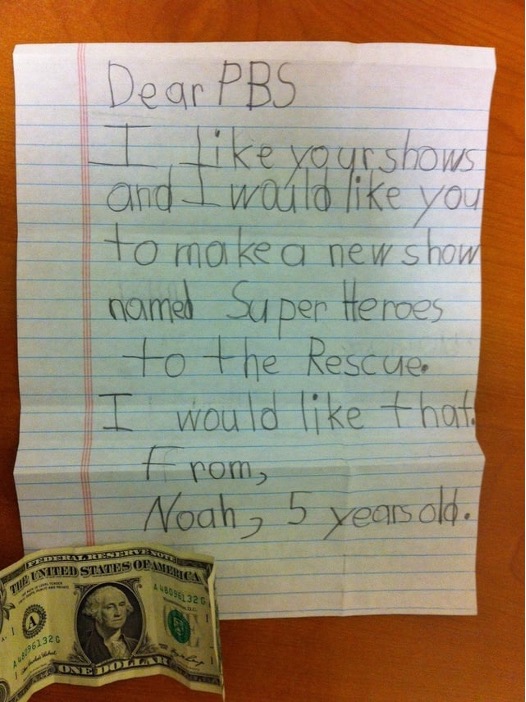 Dear PBS
I like your shows
and I would like you
to make a new show
named Super Heroes
to the Rescue.
I would like that.
From,
Noah, 5 years old.
FEDERAL RESERVE NOTE
THE UNITED STATES OF AMERICA
A 48096132 G
A
A 48096132 G
ONE DOLLAR